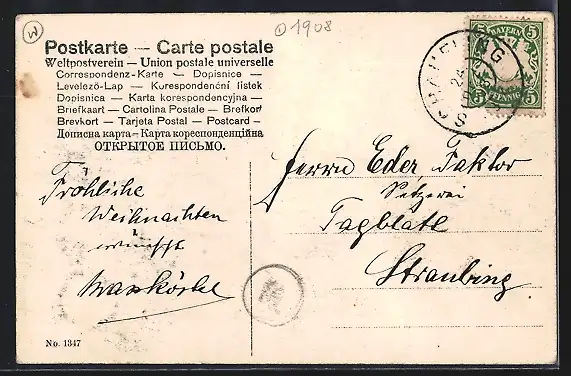 W
1908
Postkarte — Carte postale
Weltpostverein — Union postale universelle
Correspondenz-Karte — Dopisnice —
Levelező-Lap — Kurespondenční listek
Dopisnica — Karta korespondencyjna —
Briefkaart — Cartolina Postale — Brefkort
Brevkort — Tarjeta Postal — Postcard —
Дописна карта — Карта кореспонденційна
ОТКРЫТОЕ ПИСЬМО.
BAYERN
5 5
5 5
PFENNIG
24
Fröhliche
Weihnachten
wünscht
Herrn Eder, Faktor
Setzerei
Tagblatt
Straubing
No. 1347